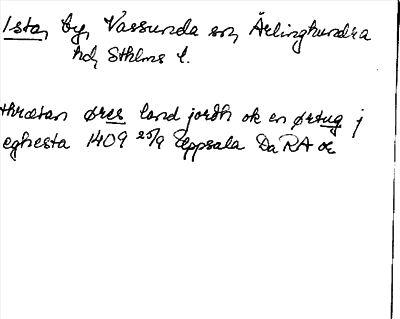 Ista, by, Vassunda sn, Ärlinghundra
hd, Sthlms l.
thrætan øres land jordh ok en ørtug j
eghesta 1409 25/9 Uppsala Da RA or